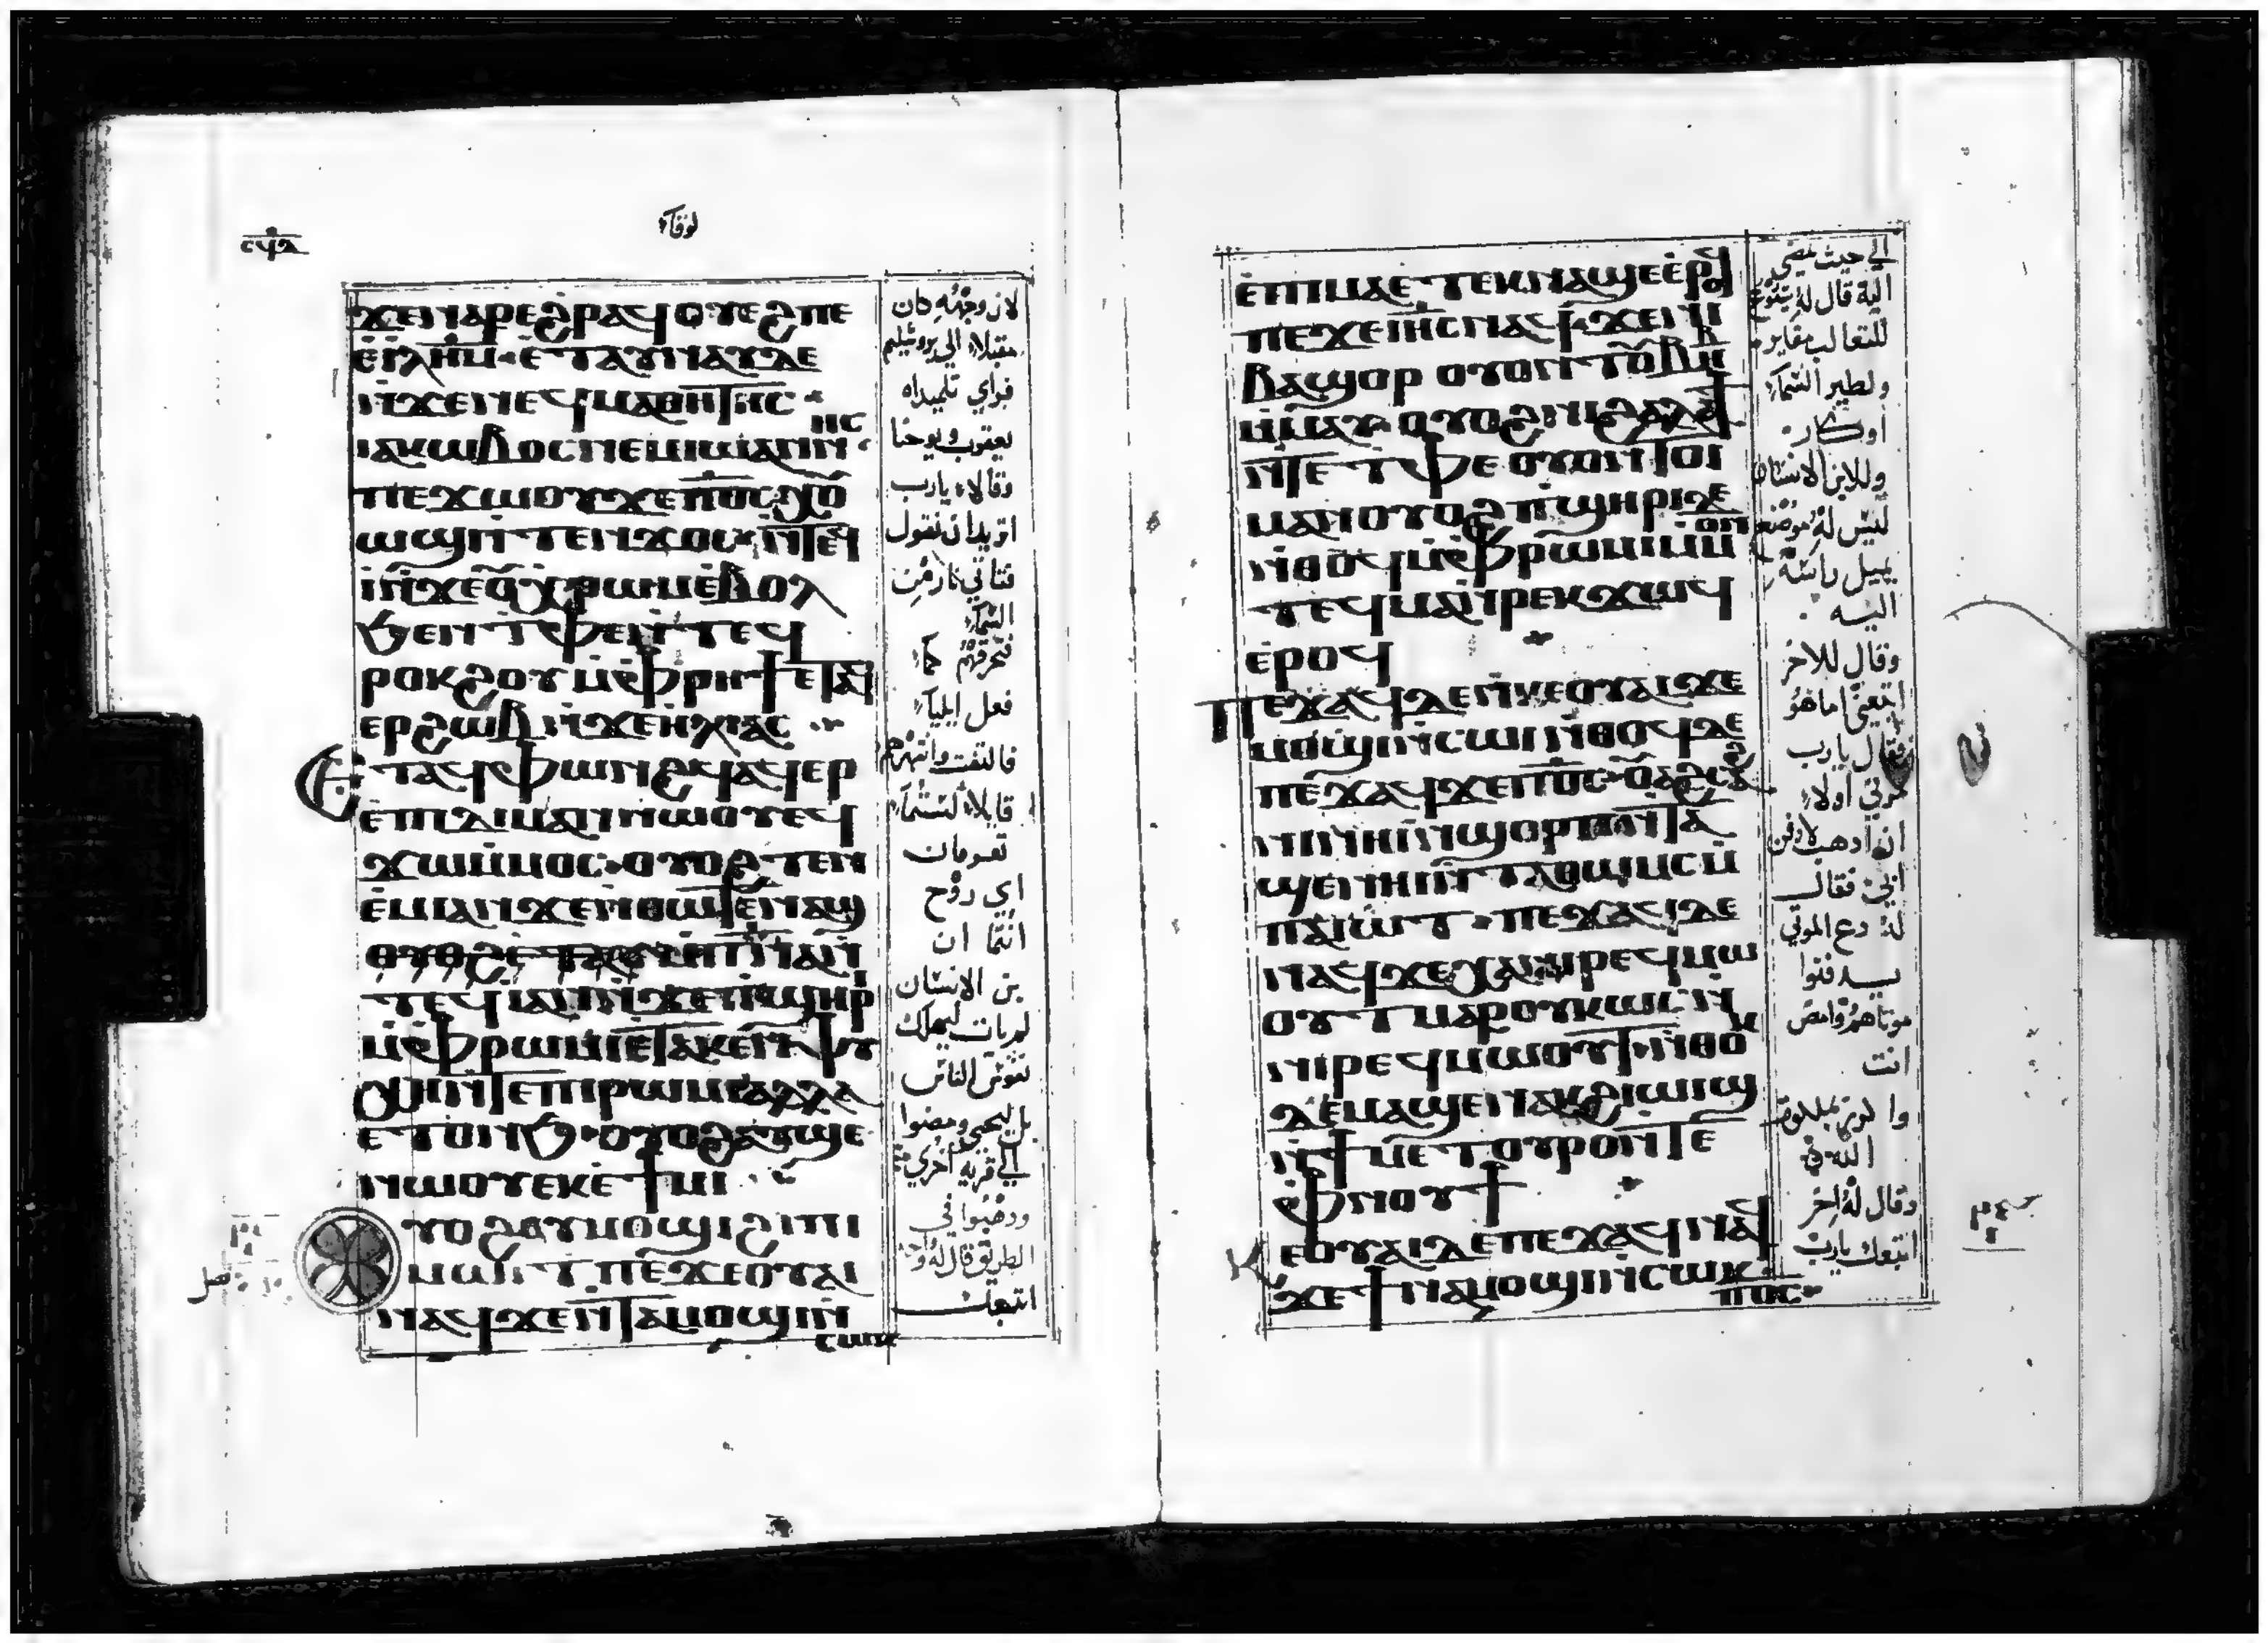 ⲥϥⲇ
لوقا
ϫⲉⲛⲁⲣⲉϩⲣⲁϥⲟⲩⲉϩⲡⲉ
ⲉⲓⲗⲏⲙ ⲉⲧⲁⲩⲛⲁⲩⲇⲉ
ⲛϫⲉⲛⲉϥⲙⲁⲑⲏⲧⲏⲥ
ⲓⲁⲕⲱⲃⲟⲥⲛⲉⲙⲓⲱⲁⲛⲛⲏⲥ
ⲡⲉϫⲱⲟⲩϫⲉⲡⲟⲥⲭⲟ
ⲱϣⲛⲧⲉⲛϫⲟⲥ ⲛⲧⲉϥ
ⲓⲛϫⲉⲟⲩⲭⲣⲱⲙⲉⲃⲟⲗ
ϧⲉⲛⲧⲫⲉⲛⲧⲉϥ
ⲣⲟⲕϩⲟⲩⲙⲫⲣⲏϯⲉⲧⲁϥ
ⲉⲣϩⲱⲃⲛϫⲉⲏⲗⲓⲁⲥ
ⲉⲧⲁϥⲫⲱⲛϩϥⲁϥⲉⲣ
ⲉⲡⲓⲧⲓⲙⲁⲛⲛⲱⲟⲩⲉϥ
ϫⲱⲙⲙⲟⲥ ⲟⲩⲟϩⲧⲉⲛ
ⲉⲙⲓⲁⲛϫⲉⲛⲑⲱⲧⲉⲛⲛⲁϣ
ⲧⲉϥⲓⲁⲛⲛϫⲉⲡϣⲏⲣⲓ
ⲙⲫⲣⲱⲙⲓⲉⲧⲁⲕⲉⲛⲯⲩ
ⲭⲏⲛⲧⲉⲛⲓⲣⲱⲙⲓⲁⲗⲗⲁ
ⲉⲧⲟⲛϧ ⲟⲩⲟϩⲁⲩϣⲉ
ⲛⲱⲟⲩⲉⲕⲉϯⲙⲓ
ⲟⲩⲟϩⲁⲩⲙⲟϣⲓϩⲓⲡⲓ
ⲙⲱⲓⲧⲡⲉϫⲉⲟⲩⲁⲓ
ⲛⲁϥϫⲉⲛⲧⲁⲙⲟϣⲓⲛ
ⲥⲱⲕ
لان وجهه كان
مقبلا الى يروشليم
فراي تلميداه
يعقوب ويوحنا
وقالا يارب
اتريد ان نقول
فتاتي نار من
السماء
فتحرقهم كما
فعل ايليا
فالتفت وانتهرهم
قايلا لستما
تعرفان
اي روح
انتما ان
بن الانسان
لم يات ليهلك
نفوس الناس
بل ليحيي ومضوا
الي قريه اخري
ودهبوا في
الطريق قال له واحد
اتبعك
ⲉⲡⲓⲙⲁⲉⲧⲉⲕⲛⲁϣⲉⲉⲣⲟϥ
ⲡⲉϫⲉⲓⲏⲥⲛⲁϥ ϫⲉⲛⲓ
ⲃⲁϣⲟⲣ ⲟⲩⲟⲛⲧⲟⲩⲃⲏⲃ
ⲙⲙⲁⲩ ⲟⲩⲟϩⲛⲓϩⲁⲗⲁϯ
ⲛⲧⲉⲧⲫⲉⲟⲩⲟⲛⲧⲟⲩ
ⲙⲁⲛⲟⲩⲟϩⲡϣⲏⲣⲓⲇⲉ
ⲛⲑⲟϥⲙⲫⲣⲱⲙⲓⲙⲙⲟⲛ
ⲧⲉϥⲙⲁⲛⲣⲉⲕϫⲱϥ
ⲉⲣⲟϥ
ⲡⲉϫⲁϥⲇⲉⲛⲕⲉⲟⲩⲁⲓϫⲉ
ⲙⲟϣⲓⲛⲥⲱⲓⲛⲑⲟϥⲇⲉ
ⲡⲉϫⲁϥϫⲉⲡⲟⲥ ⲟⲩⲁϩⲥⲁϩⲛⲓ
ⲛⲏⲓⲛϣⲟⲣⲡⲛⲧⲁ
ϣⲉⲛⲏⲓⲛⲧⲁⲑⲱⲙⲥⲙ
ⲡⲁⲓⲱⲧ ⲡⲉϫⲁϥⲇⲉ
ⲛⲁϥϫⲉⲭⲁⲛⲓⲣⲉϥⲙⲱ
ⲟⲩⲧⲙⲁⲣⲟⲩⲕⲱⲥⲛ
ⲛⲓⲣⲉϥⲙⲱⲟⲩⲧ ⲛⲑⲟⲕ
ⲇⲉⲙⲁϣⲉⲛⲁⲕϩⲓⲱⲓϣ
ⲛϯⲙⲉⲧⲟⲩⲣⲟⲛⲧⲉ
ⲫⲛⲟⲩϯ
ⲕⲉⲟⲩⲁⲓⲇⲉⲡⲉϫⲁϥⲛⲁϥ
ϫⲉϯⲛⲁⲙⲟϣⲓⲛⲥⲱⲕ
ⲡⲟⲥ
الي حيث تمضي
اليه قال له يسوع
للتعالب مقاير
ولطير السماء
اوكار
وللابن الانسان
ليس له موضع
يميل راسه
اليه
وقال للاخر
اتبعني اما هو
فقال يارب
مرني اولا
ان ادهب لادفن
ابي فقال
له دع الموتي
يدفنوا
موتاهم وامض
انت
الله
وقال له اخر
اتبعك يارب